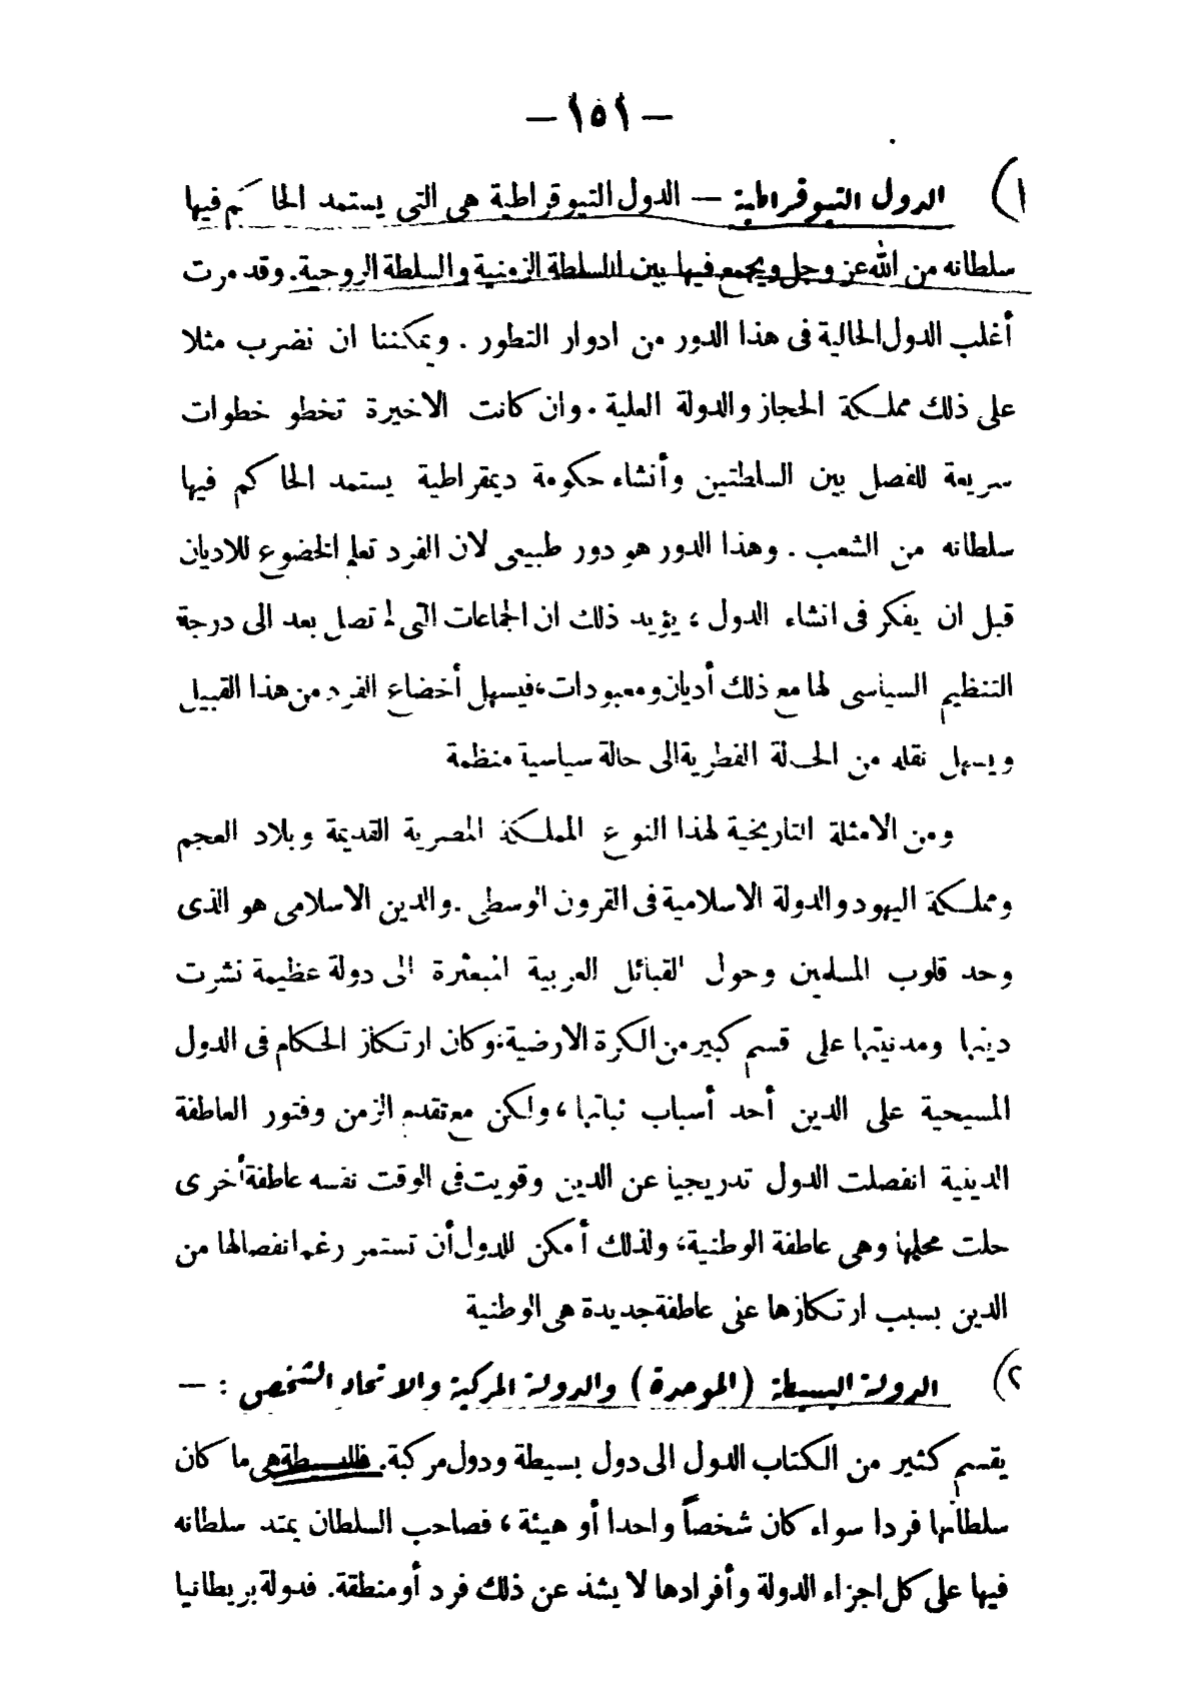 — ١٥١ —
١) الدول التيوقراطية — الدول التيوقراطية هى التى يستمد الحاكم فيها
سلطانه من الله عز وجل ويجمع فيها بين السلطة الزمنية والسلطة الروحية. وقد مرت
أغلب الدول الحالية فى هذا الدور من ادوار التطور . ويمكننا ان نضرب مثلا
على ذلك مملكة الحجاز والدولة العلية . وان كانت الاخيرة تخطو خطوات
سريعة للفصل بين السلطتين وأنشاء حكومة ديمقراطية يستمد الحاكم فيها
سلطانه من الشعب . وهذا الدور هو دور طبيعى لان الفرد تعلم الخضوع للاديان
قبل ان يفكر فى انشاء الدول ، يؤيد ذلك ان الجماعات التى لم تصل بعد الى درجة
التنظيم السياسى لها مع ذلك أديان ومعبودات، فيسهل أخضاع الفرد من هذا القبيل
ويسهل نقله من الحالة الفطرية الى حالة سياسية منظمة
ومن الامثلة التاريخية لهذا النوع المملكة المصرية القديمة وبلاد العجم
ومملكة اليهود والدولة الاسلامية فى القرون الوسطى . والدين الاسلامى هو الذى
وحد قلوب المسلمين وحول القبائل العربية المبعثرة الى دولة عظيمة نشرت
دينها ومدنيتها على قسم كبير من الكرة الارضية، وكان ارتكاز الحكام فى الدول
المسيحية على الدين أحد أسباب ثباتها ، ولكن مع تقدم الزمن وفتور العاطفة
الدينية انفصلت الدول تدريجيا عن الدين وقويت فى الوقت نفسه عاطفة أخرى
حلت محلها وهى عاطفة الوطنية، ولذلك أمكن للدول أن تستمر رغم انفصالها من
الدين بسبب ارتكازها على عاطفة جديدة هى الوطنية
٢) الدولة البسيطة (الموحدة) والدولة المركبة والاتحاد الشخصى : —
يقسم كثير من الكتاب الدول الى دول بسيطة ودول مركبة. فالبسيطة هى ما كان
سلطانها فردا سواء كان شخصاً واحدا أو هيئة ، فصاحب السلطان يمتد سلطانه
فيها على كل اجزاء الدولة وأفرادها لا يشذ عن ذلك فرد أو منطقة. فدولة بريطانيا